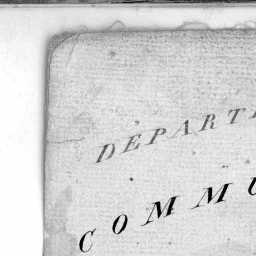 DEPART
COMMU